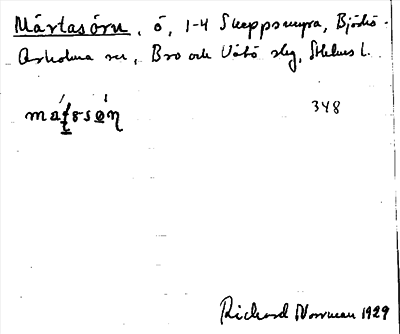 Mårtasörn, ö, 1-4 Skeppsmyra, Björkö-
Arholma sn, Bro och Vätö slg, Sthlms l.
348
Richard Norrman 1929